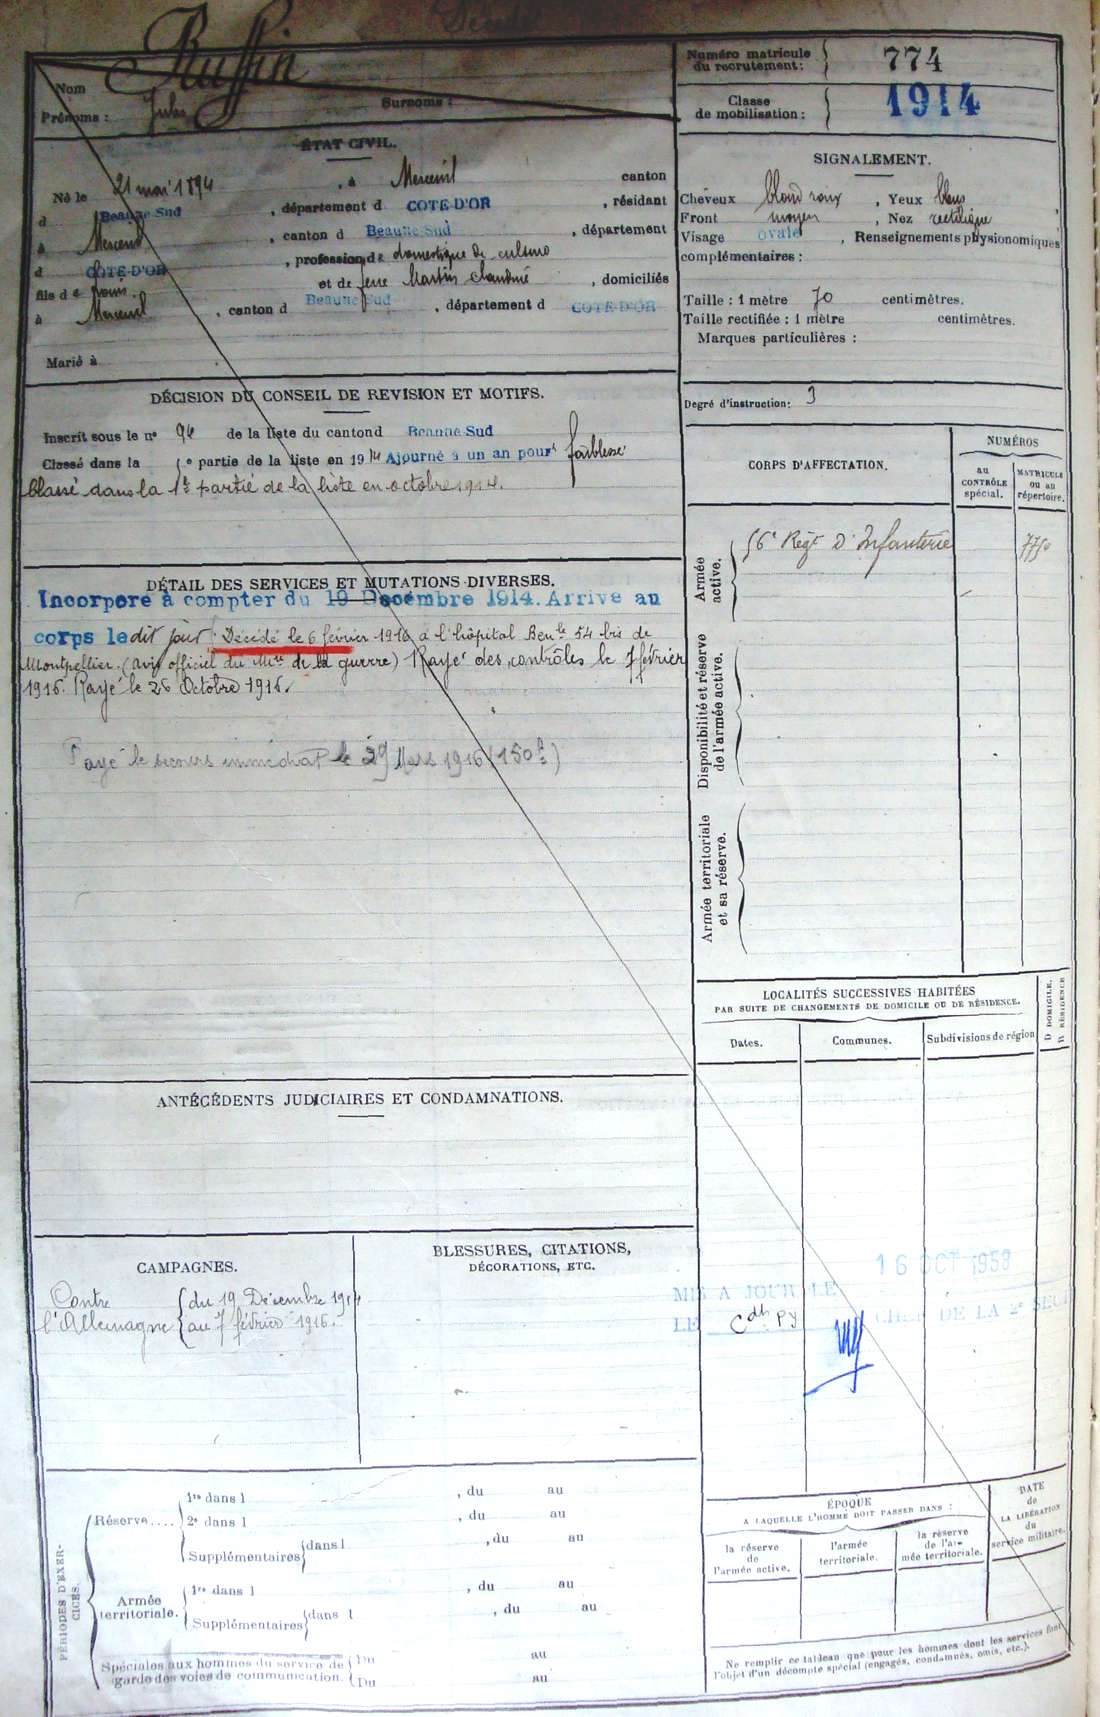 Ruffin
Nom
Prénoms : Jules Surnoms :
ÉTAT CIVIL.
Né le 21 mai 1894, à Merceuil canton
d Beaune Sud, département d COTE-D'OR, résidant
à Merceuil, canton d Beaune Sud, département
d COTE-D'OR, profession de domestique de culture
fils de Louis et de feue Martin Claudine, domiciliés
à Merceuil, canton d Beaune Sud, département d COTE-D'OR
Marié à
DÉCISION DU CONSEIL DE REVISION ET MOTIFS.
Inscrit sous le n° 94 de la liste du canton d Beaune Sud
Classé dans la 5e partie de la liste en 1914 Ajourné à un an pour faiblesse
Classé dans la 1e partie de la liste en octobre 1914.
DÉTAIL DES SERVICES ET MUTATIONS DIVERSES.
Incorporé à compter du 19 Décembre 1914. Arrivé au
corps le dit jour. Décédé le 6 février 1916 à l'hôpital Benle 54 bis de
Montpellier. (avis officiel du Mre de la guerre) Rayé des contrôles le 7 février
1916. Rayé le 26 Octobre 1916.
Payé le secours immédiat le 29 Mars 1916 (150f)
ANTÉCÉDENTS JUDICIAIRES ET CONDAMNATIONS.
CAMPAGNES.
Contre l'Allemagne
du 19 Décembre 1914
au 7 février 1916.
BLESSURES, CITATIONS,
DÉCORATIONS, ETC.
PÉRIODES D'EXERCICES.
Réserve....
1re dans l , du au
2e dans l , du au
Supplémentaires dans l , du au
Armée territoriale.
1re dans l , du au
Supplémentaires dans l , du au
Spéciales aux hommes du service de
garde des voies de communication.
Du au
Du au
Numéro matricule
du recrutement : 774
Classe
de mobilisation : 1914
SIGNALEMENT.
Cheveux blond roux, Yeux bleus,
Front moyen, Nez rectiligne
Visage ovale, Renseignements physionomiques
complémentaires :
Taille : 1 mètre 70 centimètres.
Taille rectifiée : 1 mètre centimètres.
Marques particulières :
Degré d'instruction : 3
CORPS D'AFFECTATION.
NUMÉROS
au CONTRÔLE spécial.
MATRICULE ou au répertoire.
Armée active.
56e Régt d'Infanterie 7750
Disponibilité et réserve de l'armée active.
Armée territoriale et sa réserve.
LOCALITÉS SUCCESSIVES HABITÉES
PAR SUITE DE CHANGEMENTS DE DOMICILE OU DE RÉSIDENCE.
Dates.
Communes.
Subdivisions de région
D DOMICILE.
R RÉSIDENCE
16 OCT 1958
MIS A JOUR LE
LE Cdt PY CHEF DE LA 2e SECT
ÉPOQUE
A LAQUELLE L'HOMME DOIT PASSER DANS :
la réserve de l'armée active.
l'armée territoriale.
la réserve de l'armée territoriale.
DATE de LA LIBÉRATION du service militaire.
Ne remplir ce tableau que pour les hommes dont les services font
l'objet d'un décompte spécial (engagés, condamnés, omis, etc.).